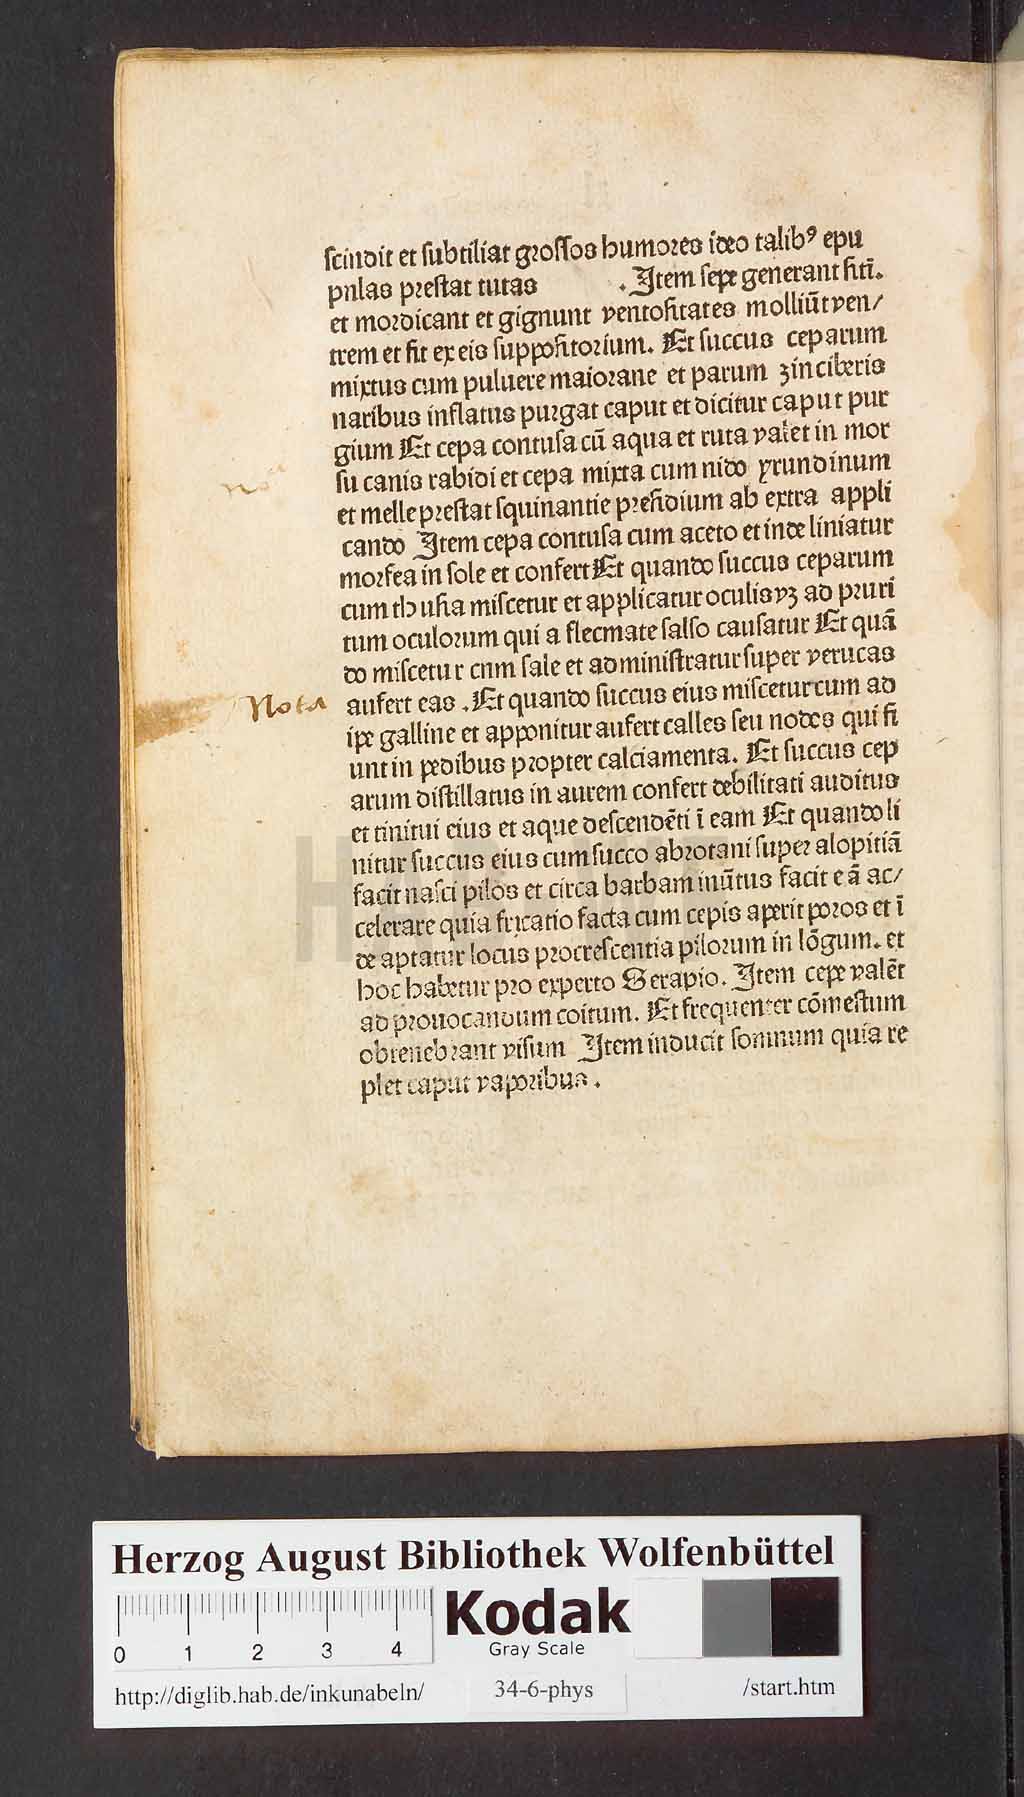 scindit et subtiliat grossos humores ideo talibꝰ epu
pnlas prestat tutas . Item sepe generant sitī.
et mordicant et gignunt ventositates molliūt ven/
trem et fit ex eis suppositorium. Et succus ceparum
mixtus cum puluere maiorane et parum zinciberis
naribus inflatus purgat caput et dicitur caput pur
gium Et cepa contusa cū aqua et ruta valet in mor
su canis rabidi et cepa mixta cum nido yrundinum
et melle prestat squinantie presidium ab extra appli
cando Item cepa contusa cum aceto et inde liniatur
morfea in sole et confert Et quando succus ceparum
cum thusia miscetur et applicatur oculis vꝫ ad pruri
tum oculorum qui a flecmate salso causatur Et quā
do miscetur cnm sale et administratur super verucas
Nota
aufert eas . Et quando succus eius miscetur cum ad
ipe galline et apponitur aufert calles seu nodos qui fi
unt in pedibus propter calciamenta. Et succus cep
arum distillatus in aurem confert debilitati auditus
et tinitui eius et aque descendēti ī eam Et quando li
nitur succus eius cum succo abrotani super alopitiā
facit nasci pilos et circa barbam inūtus facit eā ac/
celerare quia fricatio facta cum cepis aperit poros et ī
de aptatur locus procrescentia pilorum in lōgum. et
hoc habetur pro experto Serapio. Item cepe valēt
ad prouocandum coitum. Et frequenter cōmestum
obtenebrant visum Item inducit somnum quia re
plet caput vaporibus .
Herzog August Bibliothek Wolfenbüttel
0 1 2 3 4
Kodak
Gray Scale
http://diglib.hab.de/inkunabeln/ 34-6-phys /start.htm